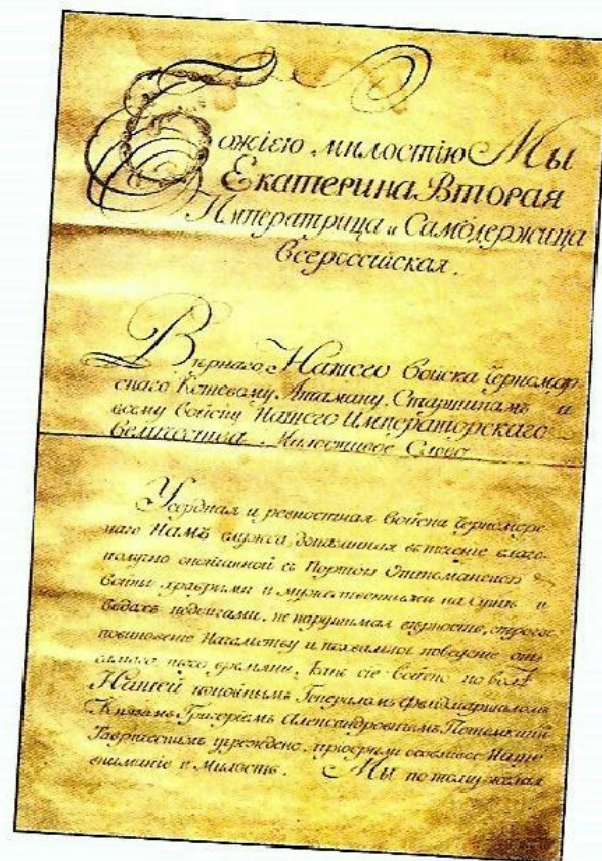 Божіею милостію Мы
Екатерина Вторая
Императрица и Самодержица
Всероссійская.
Вѣрнаго Нашего Войска Черномор
скаго Кошевому Атаману, Старшинамъ и
всему Войску Нашего Императорскаго
Величества Милостивое Слово
Усердная и ревностная Войска Черномор
наго Намъ служба, доказанная въ теченіе благо
получно оконченной съ Портою Оттоманскою
Войны храбрыми и мужественными на сушѣ и
водахъ подвигами, не нарушимая вѣрность, строгое
повиновеніе Начальству и похвальное поведеніе отъ
самого того времяни, какъ сіе Войско по волѣ
Нашей покойнымъ Генераломъ Фелдмаршаломъ
Княземъ Григоріемъ Александровичемъ Потемкинымъ
Таврическимъ учреждено, пріобрѣли особливое Наше
вниманіе и милость. Мы по тому желая